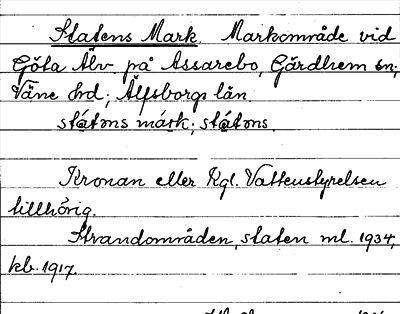 Statens Mark. Markområde vid
Göta Älv på Assarebo, Gärdhem sn;
Väne hd; Älfsborgs län.
státəns márk; státəns.
Kronan eller Kgl. Vattenstyrelsen
tillhörig.
Strandområden, staten ml. 1934,
kb. 1917.